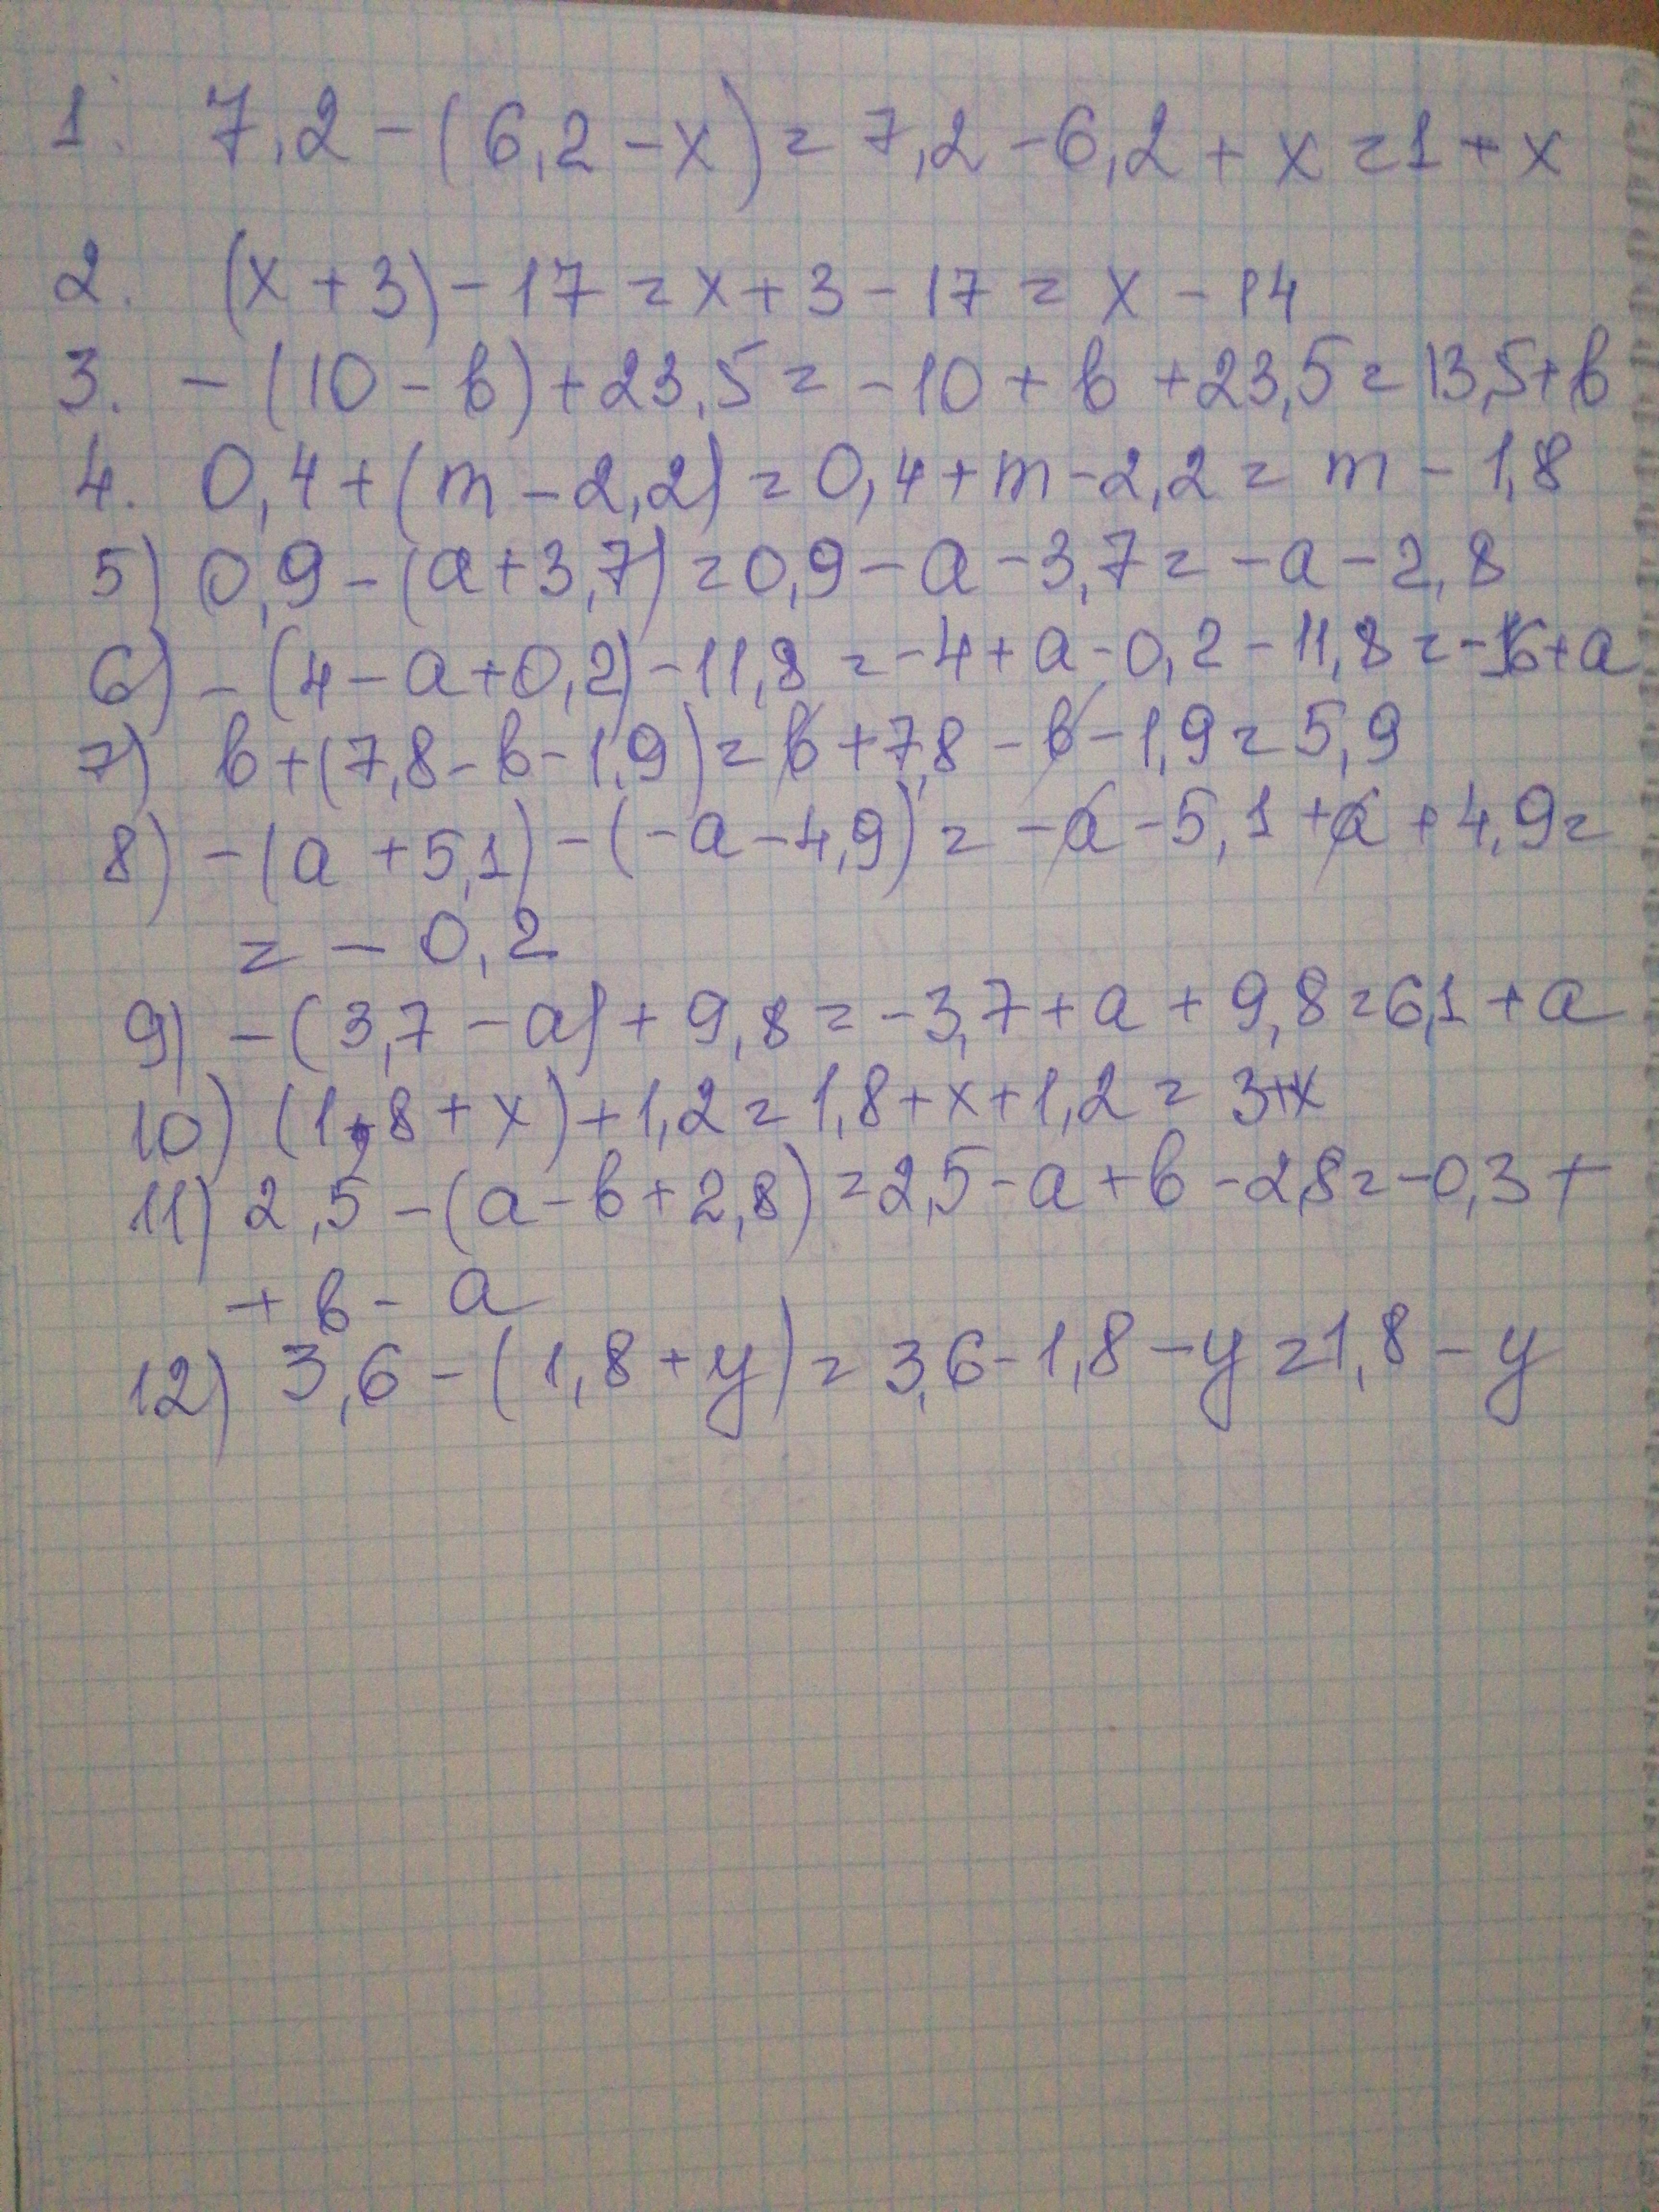 1. 7,2 - (6,2 - x) = 7,2 - 6,2 + x = 1 + x
2. (x + 3) - 17 = x + 3 - 17 = x - 14
3. - (10 - b) + 23,5 = - 10 + b + 23,5 = 13,5 + b
4. 0,4 + (m - 2,2) = 0,4 + m - 2,2 = m - 1,8
5) 0,9 - (a + 3,7) = 0,9 - a - 3,7 = - a - 2,8
6) - (4 - a + 0,2) - 11,8 = - 4 + a - 0,2 - 11,8 = - 16 + a
7) b + (7,8 - b - 1,9) = b + 7,8 - b - 1,9 = 5,9
8) - (a + 5,1) - (- a - 4,9) = - a - 5,1 + a + 4,9 =
= - 0,2
9) - (3,7 - a) + 9,8 = - 3,7 + a + 9,8 = 6,1 + a
10) (1,8 + x) + 1,2 = 1,8 + x + 1,2 = 3 + x
11) 2,5 - (a - b + 2,8) = 2,5 - a + b - 2,8 = - 0,3 +
+ b - a
12) 3,6 - (1,8 + y) = 3,6 - 1,8 - y = 1,8 - y